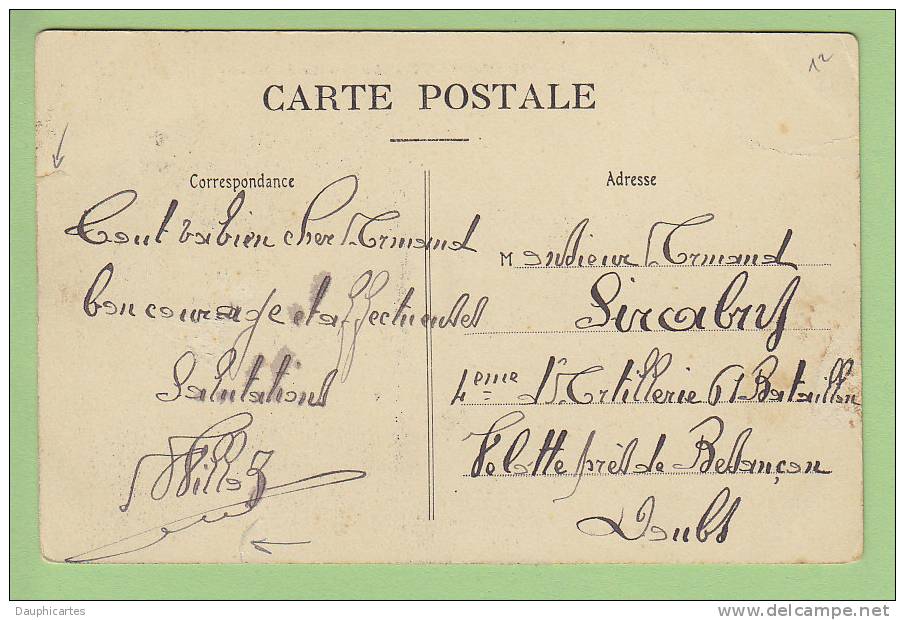 12
CARTE POSTALE
Correspondance
Tout va bien cher Armand
bon courage et affectueuses
Salutations
Adresse
Monsieur Armand
Sircabry
4eme d'Artillerie 61 Bataillon
Velotte près de Besançon
Doubs
Dauphicartes
www.delcampe.net